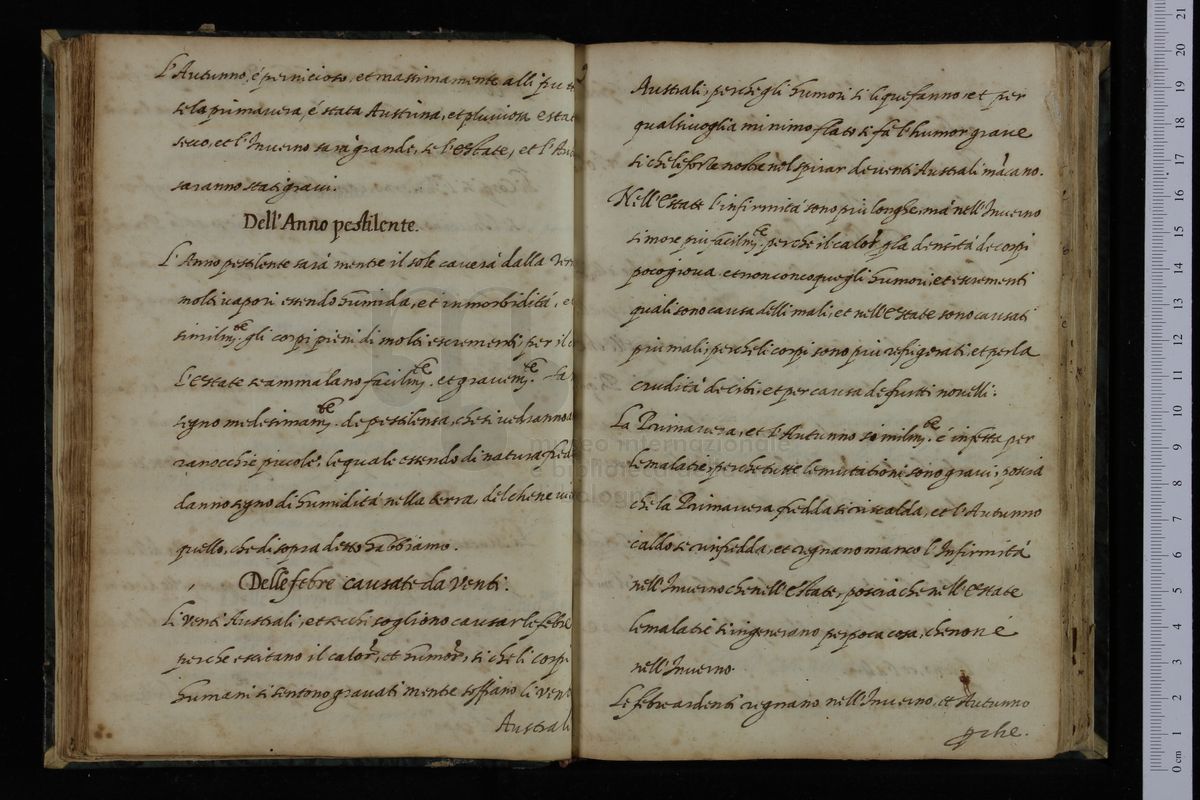 L'Autunno, é pernicioso, et massimamente alli
se la primavera, é stata Austrina, et pluviosa estat
secco, et l'Inverno sarà grande, se l'Estate, et l'Au
saranno stati gravi.
Dell'Anno pestilente.
L'Anno pestilente sará mentre il sole caverà dalla
molti vapori essendo humida, et in morbiditá, e
similmte. gli corpi pieni di molti escrementi, per il
L'Estate se ammalano facilmte. et gravemte.
segno medesimamte. de pestilensa, che si vedranno
ranocchie piccole, le quale essendo di natura
danno segno di humiditá nella terra, del che ne
quello, che di sopra detto habbiamo.
Delle febre causate da Venti.
Li venti Australi, et secchi sogliono causar le febre
perche escitano il calor, et humor, si che li corpi
humani si sentono gravati mentre soffiano li Ven
Australi
Australi, perche gli humori si liquefanno, et per
qualsivoglia minimo flato si fá l'humor grave
si che le forse nostre nel spirar de venti Australi mácano.
Nell'Estate l'infirmitá sono piu longhe, má nell'Inverno
si more piu facilmte. perche il calor, p la densitá de corpi
poco giova, et non concoque gli humori, et escrementi
quali sono causa delli mali, et nell'Estate sono causati
piu mali, perche li corpi sono piu refrigerati, et per la
crudità de cibi, et per causa de frutti novelli:
La Primavera, et l'Autunno similmte. é infetta per
le malatie, perche tutte le mutationi sono gravi, poscia
che la Primavera fredda si riscalda, et l'Autunno
caldo se rinfredda, et regnano manco l'Infirmitá
nell'Inverno che nell'Estate, poscia che nell'Estate
le malatie si ingenerano per poca cosa, che non é
nell'Inverno.
Le febre ardenti regnano nell'Inverno, et Autunno
pche.
museo internazionale
e biblioteca della musica
di bologna